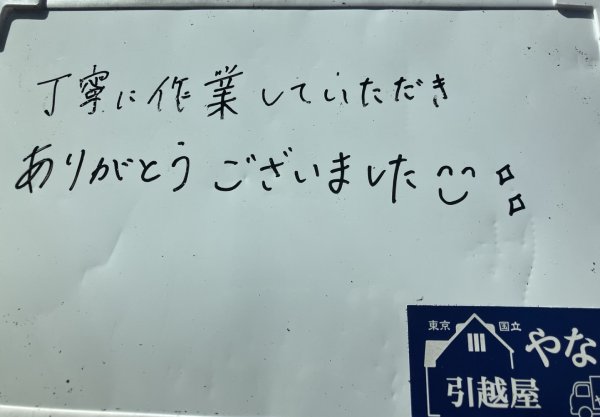 丁寧に作業していただき
ありがとうございました
東京 国立
やな
引越屋